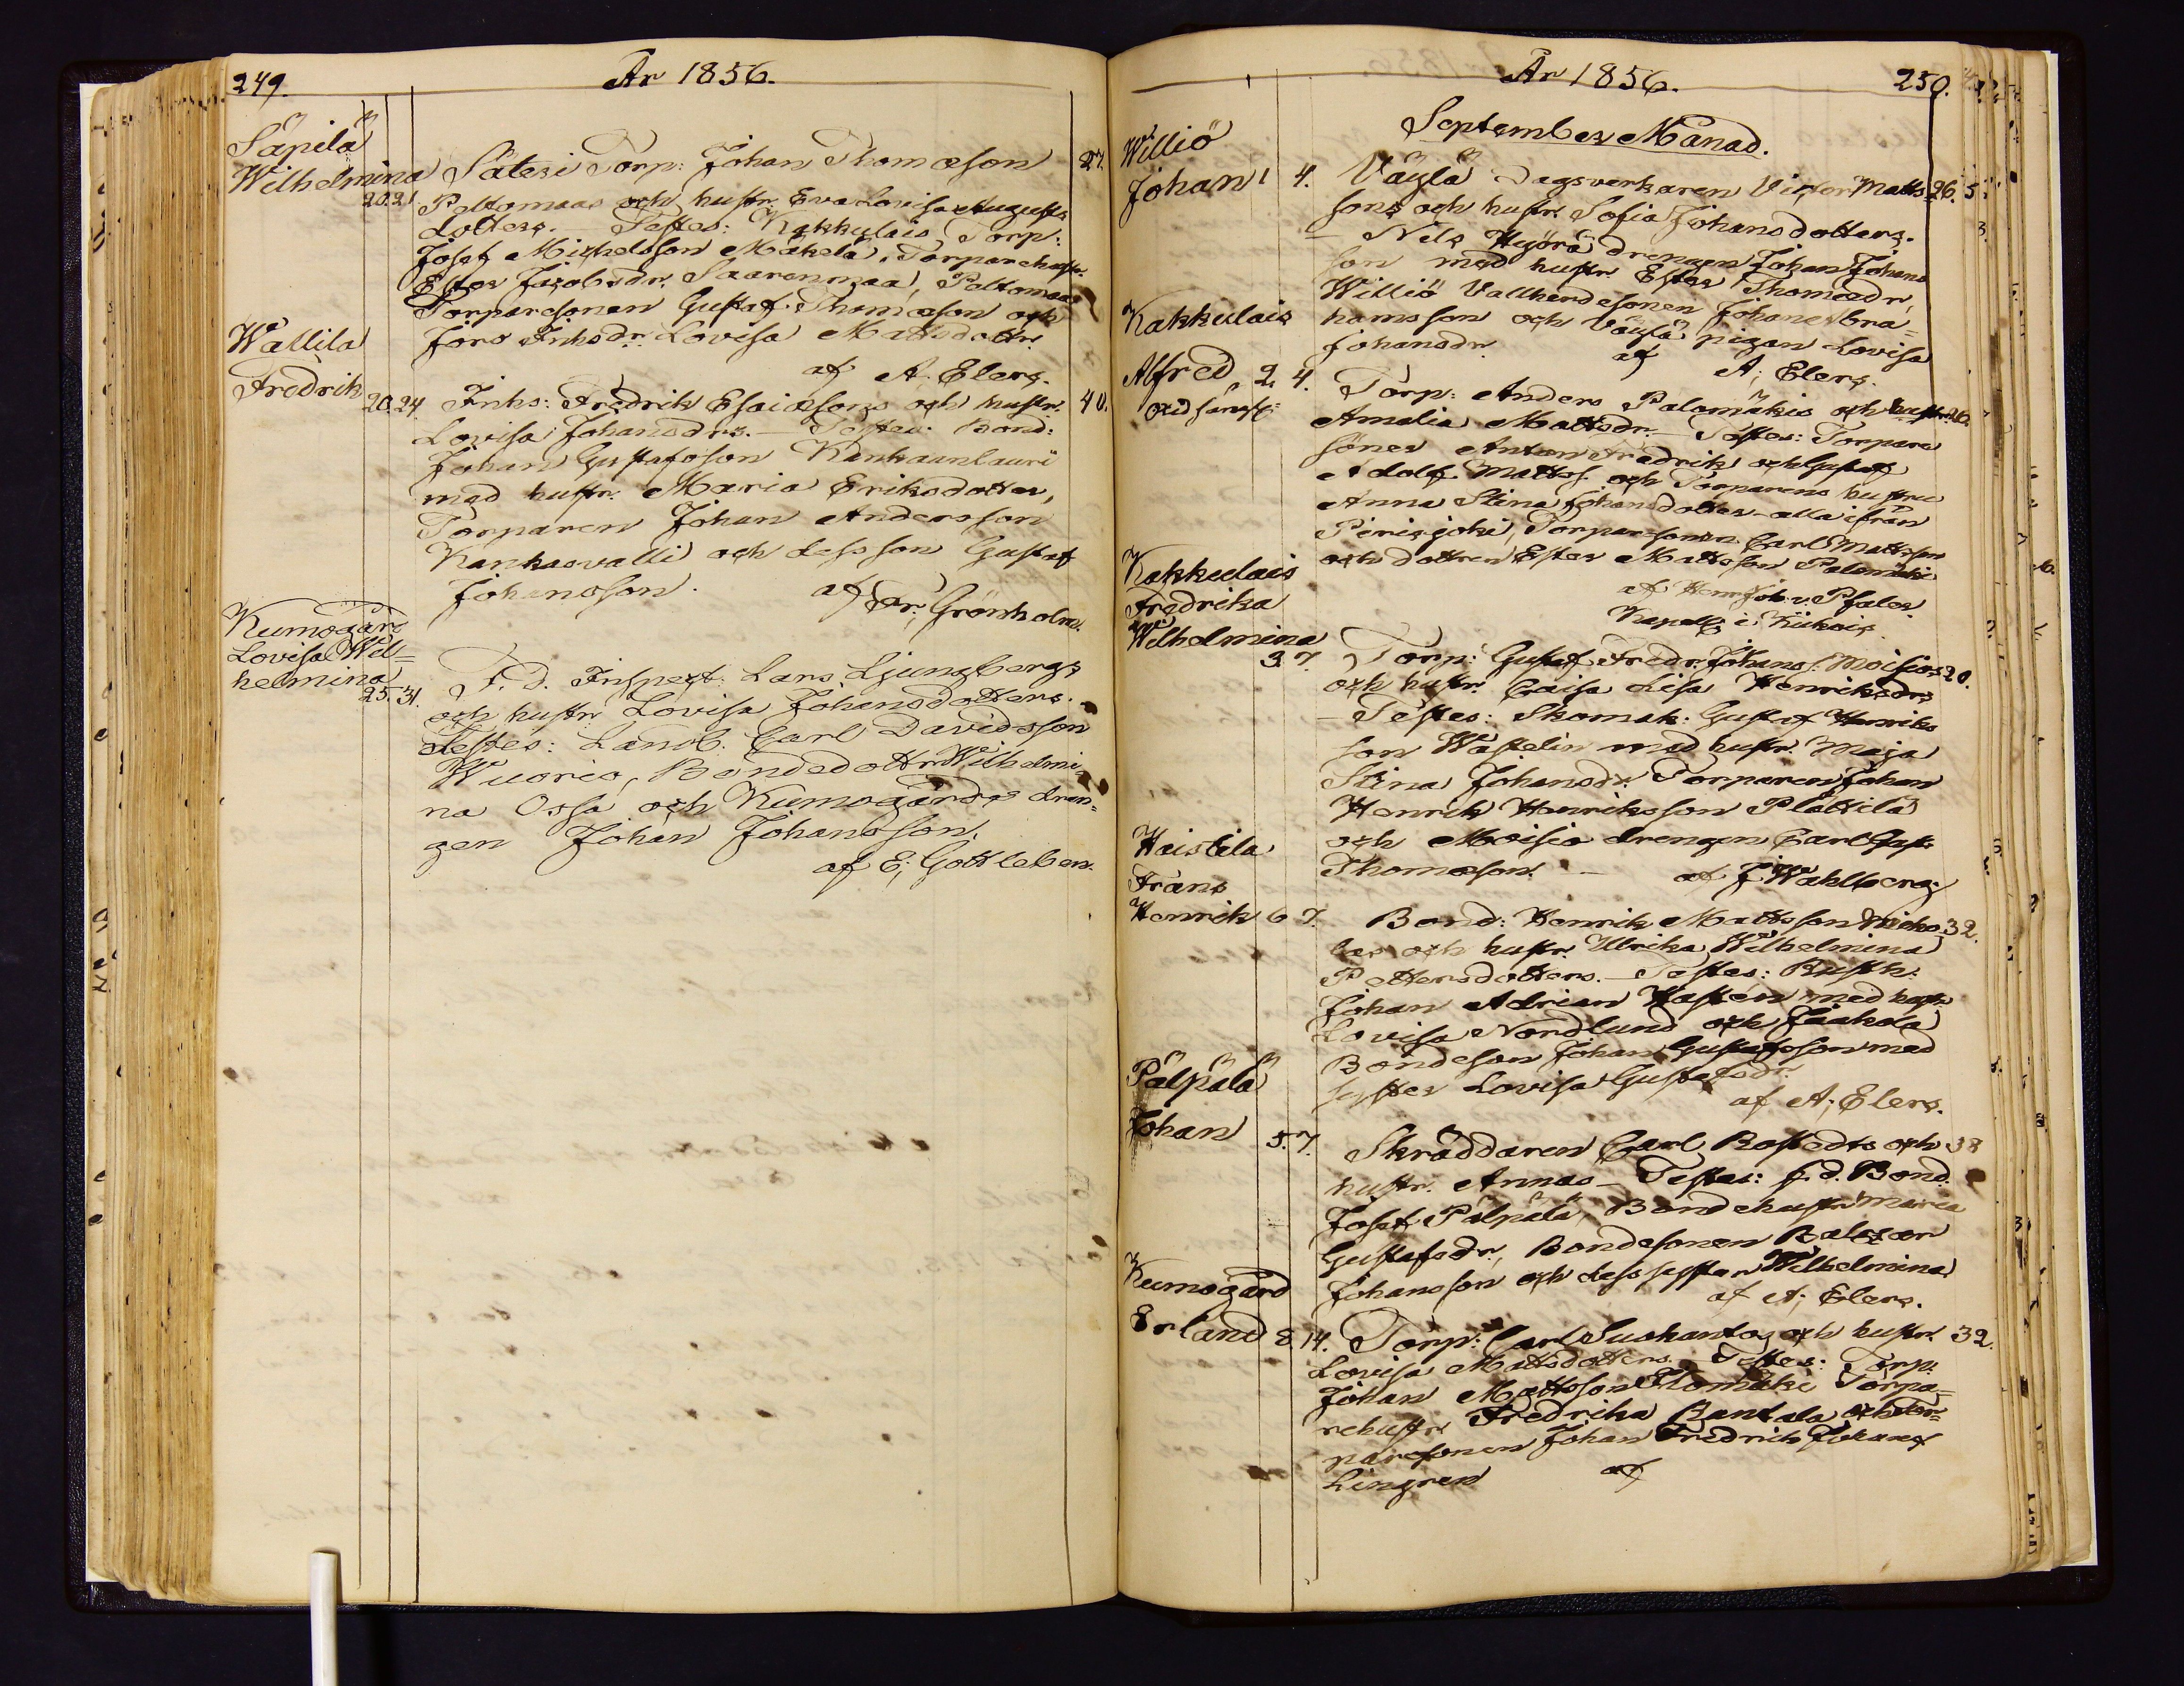 249.
År 1856.
Säpilä
Wilhelmina 20. 21
Säteri Torp: Johan Thomæson 27.
Peltomaas och hustr. Eva Lovisa Augusts
dotters. Testes: Kakkulais Torp:
Josef Michelsson Mäkelä, Torparehustr.
Ester Jacobsdr. Saarenmaa, Peltomaas
Torparesonen Gustaf Thomæson och
Jöro Inhsdr. Lovisa Mattsdottr.
af A. Elers.
Wallila
Fredrik 20. 24
Inhs: Fredrik Esaiæsons och hustr. 40.
Lovisa Johansdrs. – Testes: Bond:
Johan Gustafsson Kankaanlauri
med hustr. Maria Eriksdotter,
Torparen Johan Andersson
Kankaovalli och dess son Gustaf
Johansson. af Fr. Grönholm.
Kumogård
Lovisa Wil=
helmina 25. 31.
F. d. Inspect: Lars Ljungbergs
och hustr. Lovisa Johansdotters. –
Testes: Landb. Carl Davidsson
Wuorio, Bondedottr Wilhelmi=
na Ossa och Kumogårds dren=
gen Johan Johansson.
af E; Gottleben.
År 1856.
250.
September Månad.
Williö
Johan 1 4.
Väylä Dagsverkaren Victor Matts 26.
sons och hustr. Sofia Johansdotters.
– Nels Hyörä drengen Johan Johans
son med hustr Ester Thomædr,
Williö Vallherdesonen Johan Abra=
hamsson och Väylä pigan Lovisa
Johansdr. af A; Elers.
Kakkulais
Alfred 2. 4.
Torp: Anders Palomäkis och hustr. 26.
Amalia Mattsdr. – Testes: Torpare
söner Anton Fredrik och Gustaf
Adolf Mattss. och Torparens hustru
Anna Stina Johansdotter – alla ifrån
Pirisjoki, Torparesonen Carl Mattsson
och dottren Ester Mattsson Palomäki
af Henr. Joh. v. Pfaler
Kapell: i Kiikois.
Kakkulais
Fredrika
Wilhelmina 3 7.
Torp: Gustaf Fredr. Johans. Moisios 20.
och hustr. Caisa Lisa Henriksdrs
– Testes: Skomak: Gustaf Henriks
son Wästelin med hustr. Maja
Stina Johansdr. Torparen Johan
Henrik Henriksson Plättilä
och Moisio drengen Carl Gust.
Thomæson. – af J Wahlberg
Haistila
Frans
Henrik 6 7.
Bond: Henrik Mattsson 32.
och hustr. Ulrika Wilhelmina
Pettersdotters. – Testes: Rusth:
Johan Adrian Hasten med hustr
Lovisa Nordlund och Jaakola
Bondeson Johan Gustafsson med
syster Lovisa Gustafsdr.
af A; Elers.
Pälpälä
Johan 5. 7.
Skräddaren Carl Bostedts och 38
hustr. Annas – Testes: f. d. Bond.
Josef Pälpälä, Bondehustr Maria
Gustafsdr, Bondesonen Baltzar
Johansson och dess syster Wilhelmina
af A; Elers.
Kumogård
Erland 8. 14.
Torp: Carl Suohantos och hustr. 32.
Lovisa Mattsdotters. – Testes: Torp.
Johan Mattsson Ilomäki Torpa=
rehustr Fredrika Rantala och Tor=
paresonen Johan Fredrik Johans
Lingren af